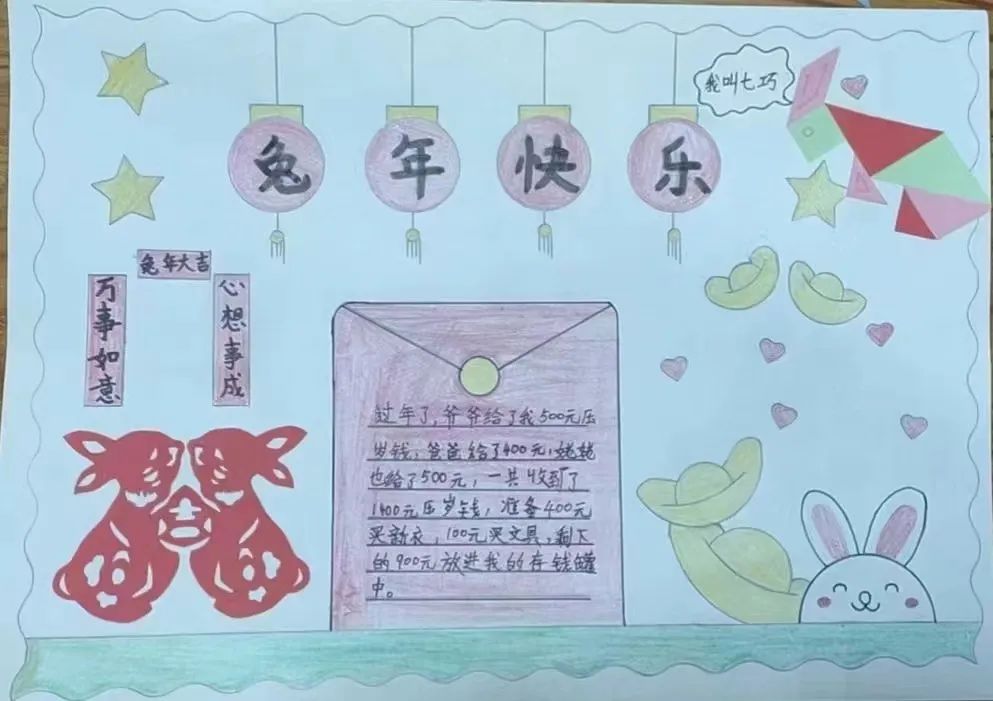 兔年快乐
我叫七巧
兔年大吉
万事如意
心想事成
过年了,爷爷给了我500元压
岁钱,爸爸给了400元,姥姥
也给了500元,一共收到了
1400元压岁钱,准备400元
买新衣,100元买文具,剩下
的900元放进我的存钱罐
中。